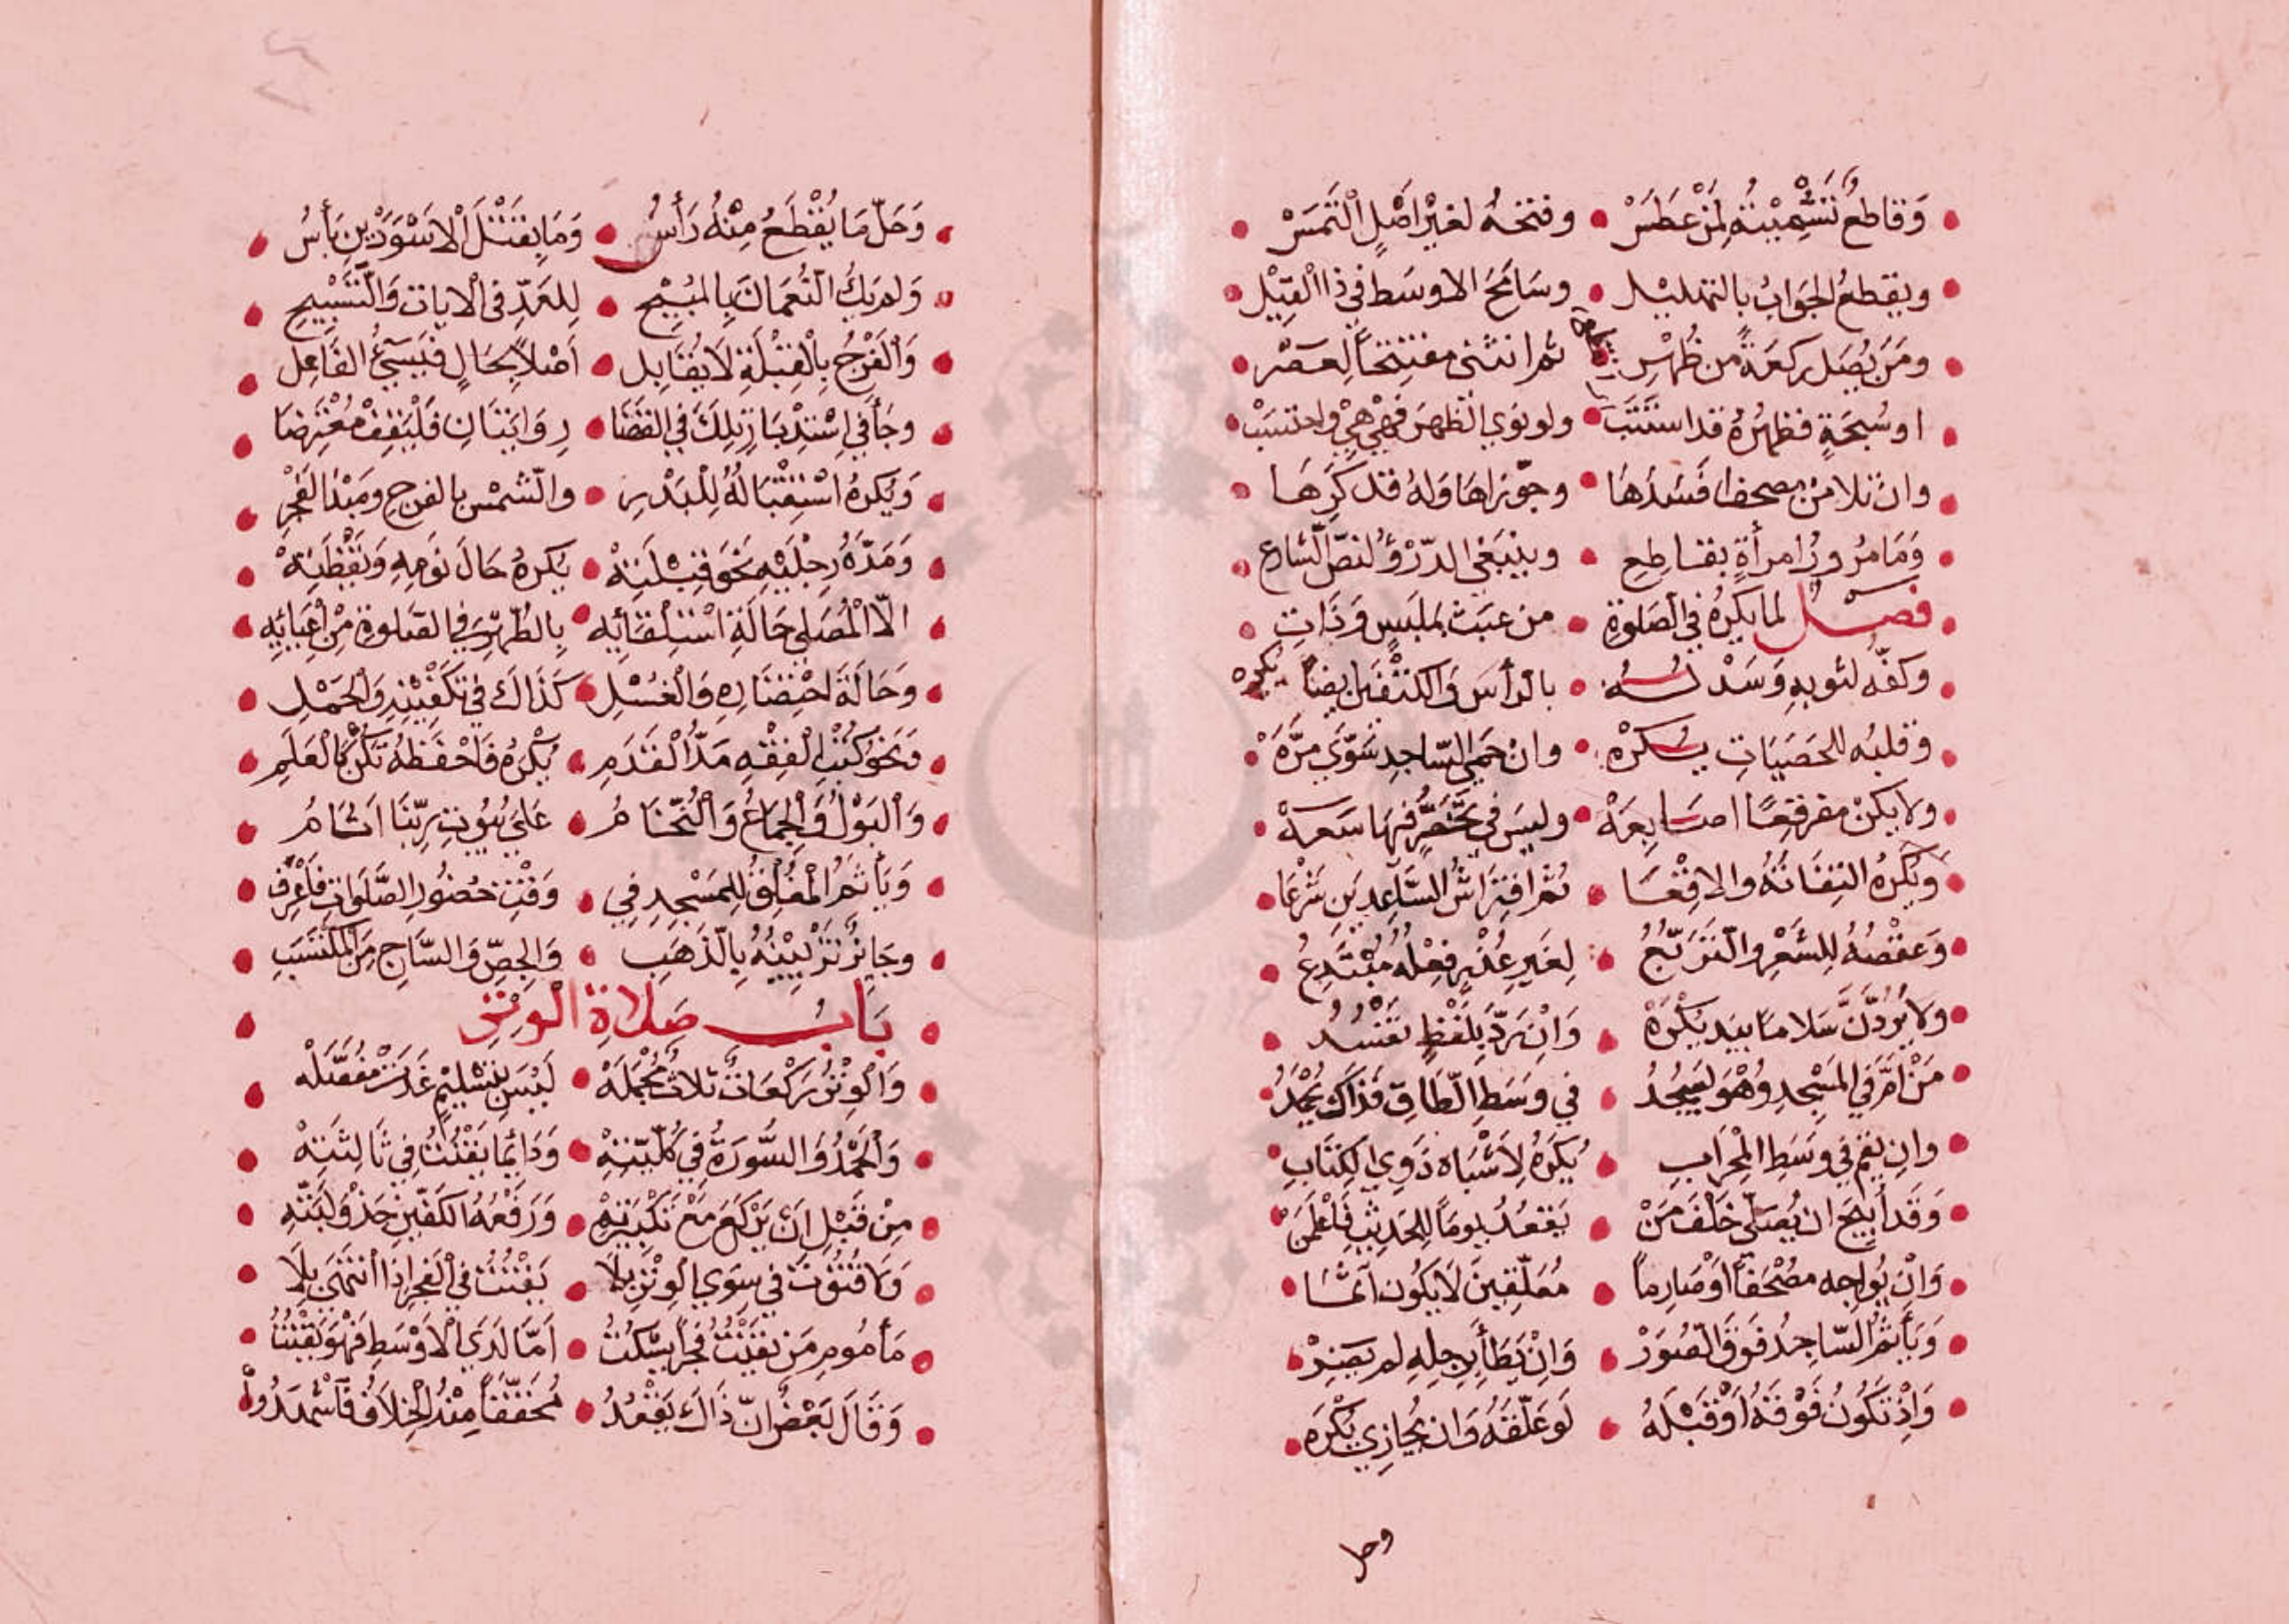 وَقاطعٌ تَشْمِيْتُهُ لِمَنْ عَطَسْ • وفتحهُ لغيْرِ اصْلٍ الْتَمَسْ
ويقطعُ الجَوَابُ بالتهليل • وسَامَحَ الاوسَط في ذا القِيْل
ومَنْ يُصَل ركعَةً من ظُهْرِ • ثم انثنى مفتتحاً لِعَصْر
اوسُبحَةٍ فظهرهُ قد استتَبَ • ولو نوي الظهرَ فَهْيَ هِيْ واحتسَبْ
وان تلا من مصحف افسَدَهَا • وجوّزاهَا وَلهُ قد كَرِهَا
وَمَا مرُورُ امرأةٍ بقاطِعِ • وينبَغي الدّرْؤُ لنصّ الشارع
فصل لما يكرهُ في الصَلوةِ • من عبَث بملبَسٍ وَذَاتِ
وكفّه لثوبهِ وَسَدْلُهُ • بالرأسَ وَالكتْفَين ايضاً يكره
وقلبُه للحصَيَاتِ يُكرَهْ • وان حَمَي السّاجدِ سَوّي مرَّهْ
ولا يكنْ مفرقعًا اصَابِعَهْ • وليسَ في تخَصُّرٍ فيهَا سَعهْ
وَيُكْرهُ التِفَاتهُ والاقِعْا • ثم افتِرَاشُ السَّاعِدينِ شَرْعَا
وَعقْصُهُ لِلشَعْرِ والتَرَبّعُ • لِغَيرِ عُذْرٍ فِعْلُهُ مُبْتَدِعُ
وَلاَ يَرُدَّنَّ سَلامًا بيَد يكْرَهْ • وَانْ يَرَدّ بِلَفْظٍ تفْسُدُ
مَنْ اَمَّ في المَسْجدِ وُهْوَ يَسْجُدُ • في وسَطِ الطَاقِ فَذَاكَ يُحْمَدُ
وان يقم في وسَطِ المِحْرَابِ • يُكرَهُ لاَشْبَاه ذَوِي الكِتَابِ
وَقَد أُبيحَ ان يُصَلّى خَلْفَ مَنْ • يَقعُدُ يوماً لِلحَدِيثِ فَاعْلَمَنْ
وَانْ يُواجِه مُصْحَفاً اَوْ صَارِماً • مُعَلّقِينَ لاَ يَكُون آثمَا
وَيَأثَمُ السّاجدُ فَوقَ الصُوَرْ • وَانْ يَطَأ برِجلِهِ لم يَضِرْ
وَاِذْ تَكُونُ فَوْقَهُ اَوْ قَبْلَهُ • لَو عَلّقَهُ وَان يُحَازِي يُكْرَه
وحل
وَحَلّ مَا يُقْطَعُ مِنْهُ رَأسُ • وَمَا بِقَتْلَ الاَسْوَدَيْنِ بَأسُ
وَلم يَكُ النُعَمانَ بِالمبُيْحِ • لِلعَدِّ في الايات وَالتّسْبِيْحِ
وَالفَرْجُ بِالْقِبْلَةِ لاَ يُقَابِل • اَصْلاً بِحَالٍ فيُسِيئُ الفَاعِل
وجَأَ في اِسْتِدْبَارِ تِلكَ في الفَضَا • رِوَايَتَانِ فَليَقِفْ مُعْتَرِضَا
وَيُكرهُ اسْتِقْبَالهُ لِلْبَدْرِ • والشمْس بالفرجِ ومَبْدَا الفَجْرِ
وَمَدّهُ رِجْلَيْهِ نحْوَ قِبْلَتِهْ • يُكرهُ حَالَ نَومِهِ وَيَقْظَتِهْ
الاّ الْمُصَلي حَالَةَ اسْتِلْقَائِه • بِالطُهْرِ في الصَلوةِ مِنْ اِعْيَائِهِ
وَحَالَةَ احْتِضَارهِ وَالغُسْلِ • كَذَاكَ في تَكَفْيْنِهِ وَالحَمْلِ
وَنحْوُ كُتْبِ الْفِقْهِ مَدُّ الْقَدَمِ • يُكْرَهُ فَاحْفَظهُ تكُنْ كَالْعَلَمِ
وَالبَوْلُ وَالجِمَاعُ وَالنُخَامُ • عَلَى بُيُوتِ رَبِّنَا اَثَامُ
وَيَأثَمُ المْغُلِقُ لِلمَسْجِدِ في • وَقْتِ حُضُورِ الصَّلَوَاتِ فَاعْرِف
وجَايزٌ تزْيِيْنُهُ بِالذَهَبِ • وَالجِصّ وَالسَّاجِ مِنَ المُكْتَسَبِ
بَابُ صَلاَةِ الْوِتْرِ
وَالْوِتْرُ رَكْعَاتٌ ثلاثٌ مُجْمَلَهْ • لَيْسَ بِتسْلِيْمٍ غَدَتْ مُفَصَّلَهْ
وَالحَمْدُ وَالسُّورَةُ في كُلّيّتِهْ • وَدَائِمًا يَقْنُتُ في ثَالِثَتِهْ
مِنْ قَبْلِ اَنْ يَرْكَعَ مَعْ تَكْبِيْرِتِهِ • وَرَفْعُهُ الكَفّيْنِ حَذْوَ لَبَّتِهِ
وَلاَ قُنُوْتَ في سِوَي الوِتْرِ بَلاَ • يَقْنُتُ في الفَجرِ اِذَا انتَهَى بِلاَ
مَأمُوم مَن يَقْنُتُ فَجْراً يَسْكُتُ • اَمّا لَدَي الاَوْسَطِ فَهْوَ يَقْنُتُ
وَقَالَ بَعْضٌ اِنّ ذَاكَ يَقْعُدُ • مُحَقّقاً مِنْهُ الْخِلاَفُ فَاشْهَدُوا